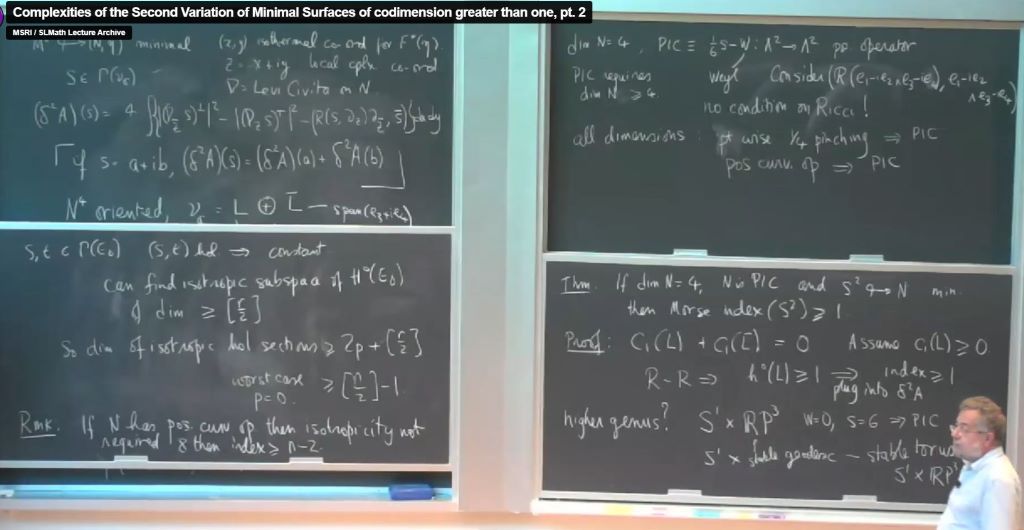 Complexities of the Second Variation of Minimal Surfaces of codimension greater than one, pt. 2
MSRI / SLMath Lecture Archive
minimal (x,y) isothermal co-ord for F*(g).
S ∈ Γ(ν_σ) z = x+iy local cplx co-ord
∇ = Levi Civita on N
(δ²A)(s) = 4 ∫{|∇_z̄ s)^⊥|² - |(∇_z s)^T|² - (R(s,∂_z)∂_z̄, s̄)}dxdy
If s = a+ib, (δ²A)(s) = (δ²A)(a) + δ²A(b)
N⁴ oriented, ν_σ = L ⊕ L̄ — span(e₃+ie₄)
s,t ∈ Γ(E_0) (s,t) hol ⇒ constant
can find isotropic subspace of H⁰(E_0)
of dim ≥ [r/2]
So dim of isotropic hol sections ≥ 2p + [r/2]
worst case p=0. ≥ [n/2]-1.
Rmk. If N has pos. curv op then isotropicity not
required & then index ≥ n-2.
dim N=4, PIC ≡ 1/6 s-W : Λ²→Λ² pos operator
PIC requires Weyl Consider (R(e₁-ie₂∧e₃-ie₄), e₁-ie₂
dim N ≥ 4. ∧e₃-ie₄)
no condition on Ricci!
all dimensions: pt wise 1/4 pinching ⇒ PIC
pos curv. op ⇒ PIC
Thm. If dim N=4, N is PIC and S² ↬ N min.
then Morse index (S²) ≥ 1.
Proof: C₁(L) + C₁(L̄) = 0 Assume C₁(L) ≥ 0.
R-R ⇒ h⁰(L) ≥ 1 ⇒ index ≥ 1
plug into δ²A
higher genus? S¹ × RP³ W=0, s=6 ⇒ PIC
S¹ × stable geodesic - stable torus
S¹ × RP³